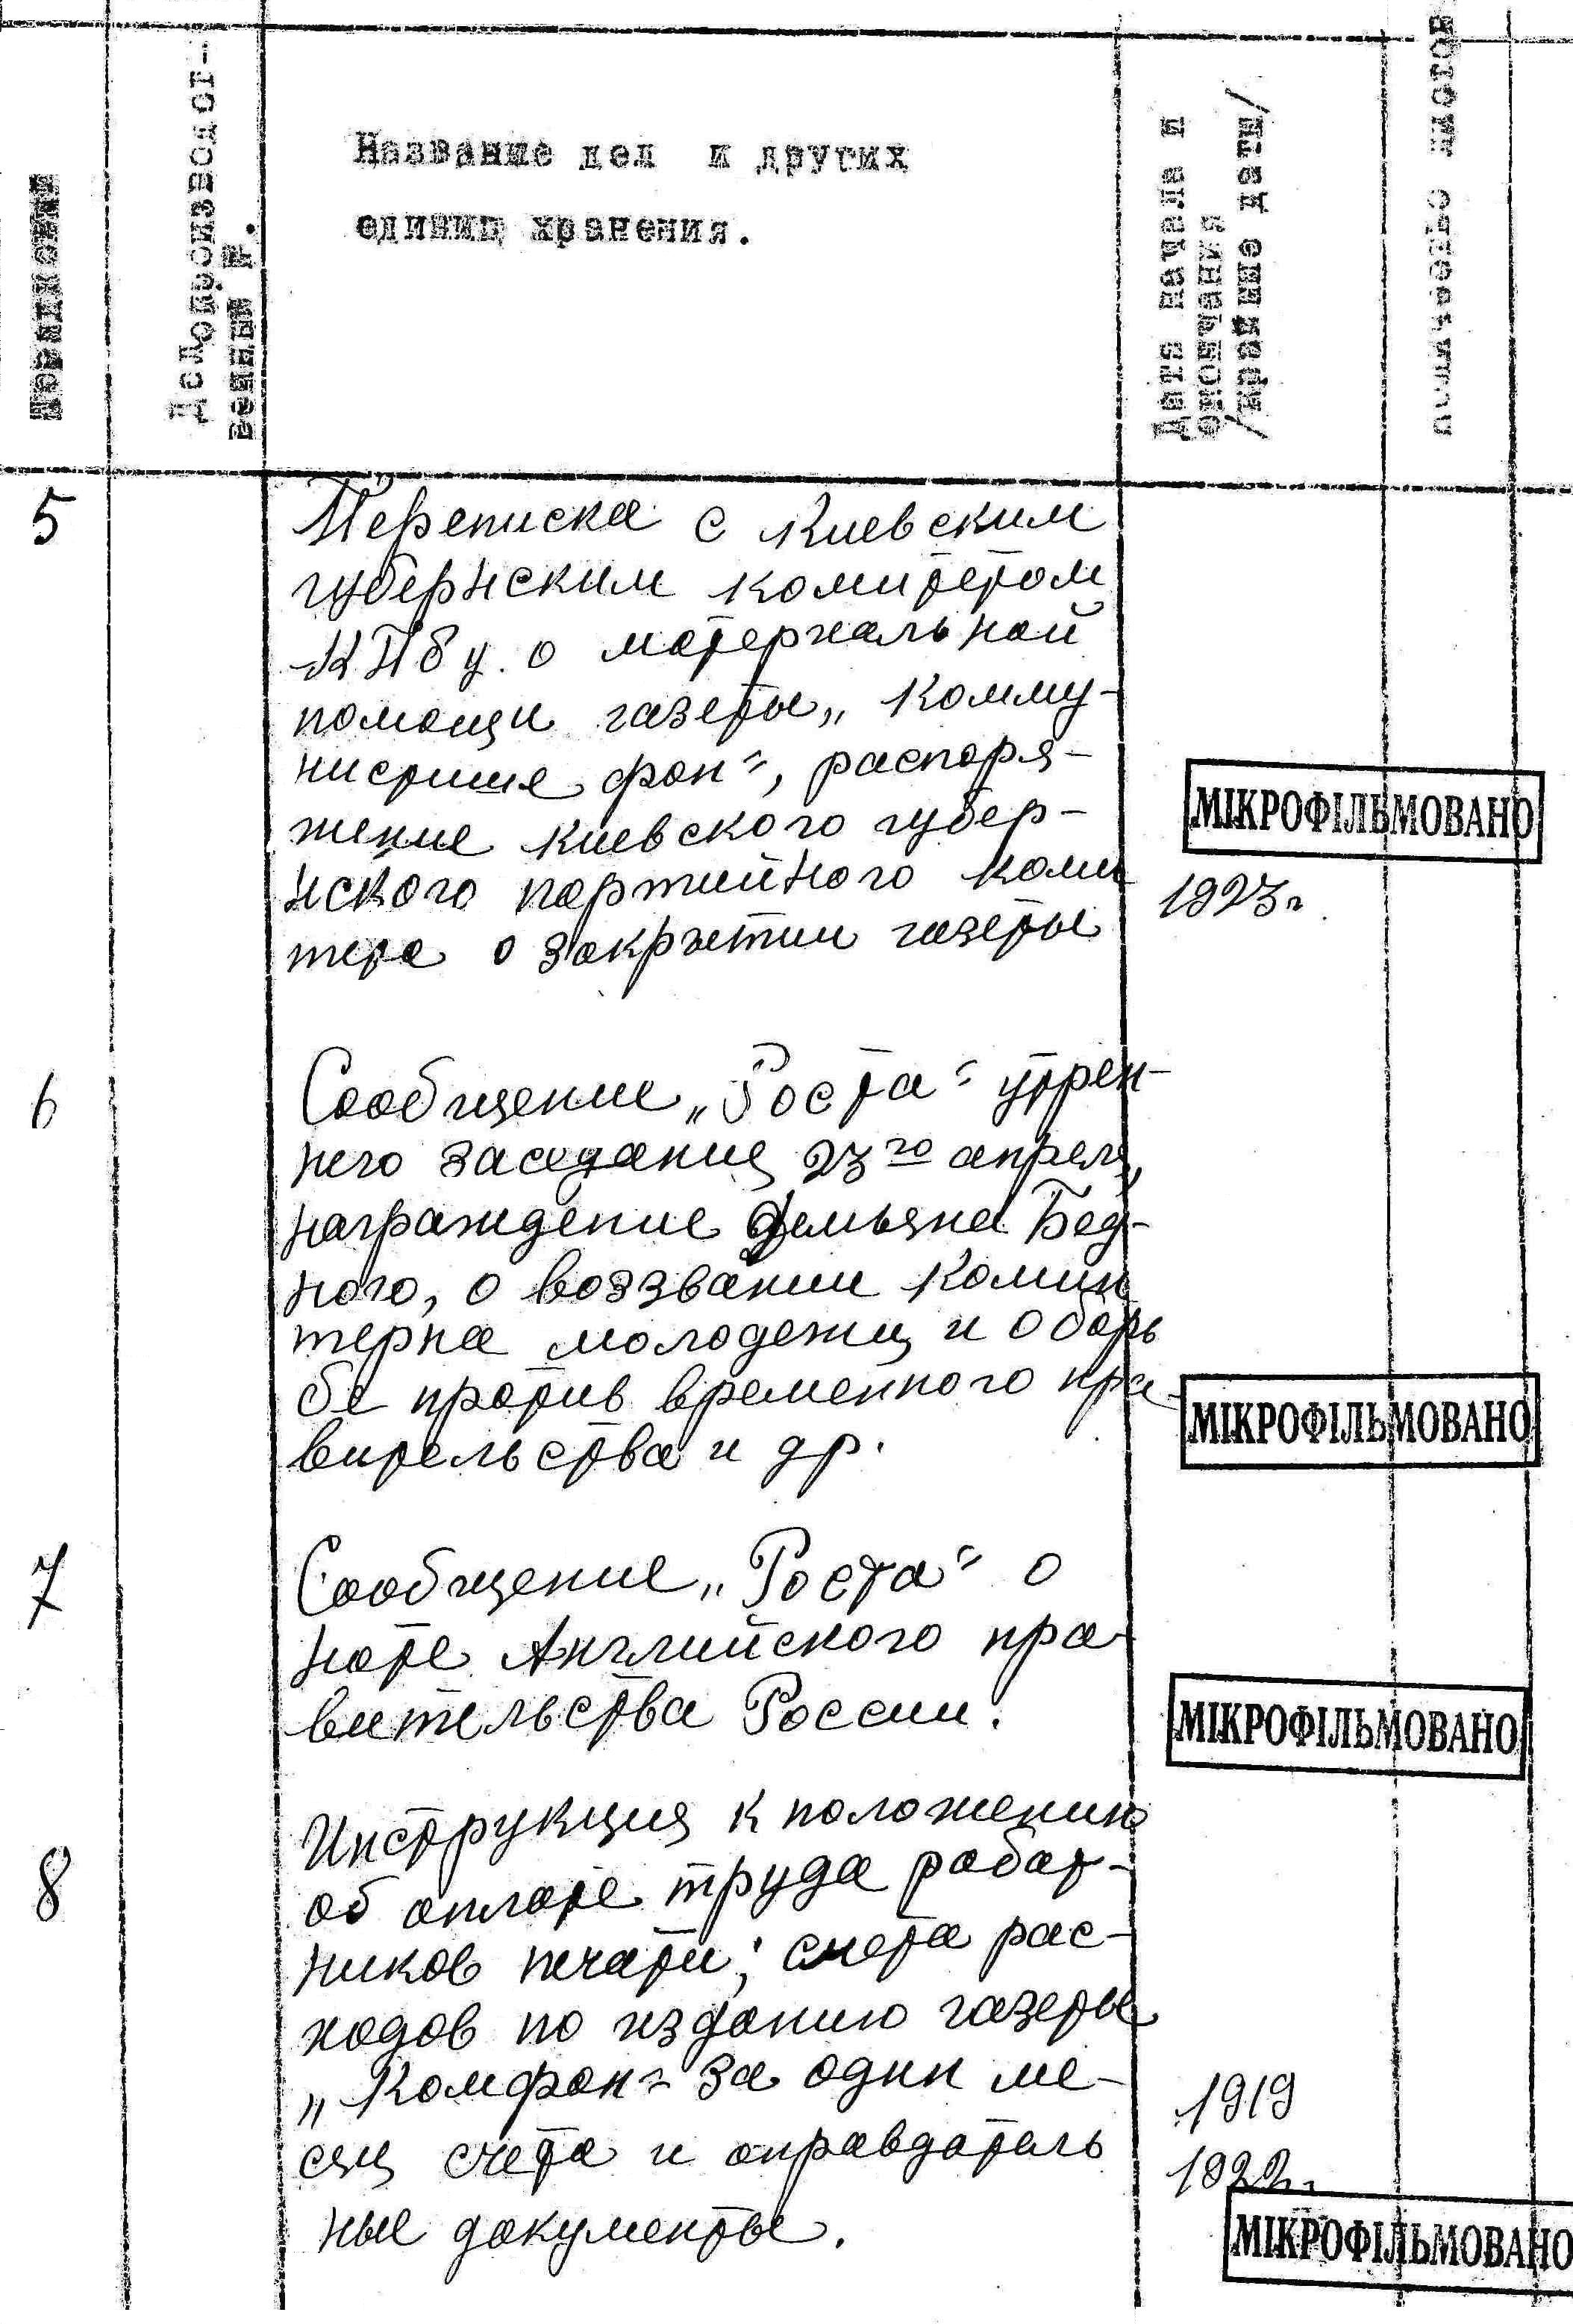 Делопроизводст-
венный №.
Название дел и других
единиц хранения.
Дата начала и
окончания
/крайние даты/
5
Переписка с Киевским
губернским комитетом
КПбУ. о материальной
помощи газеты „Комму-
нистише фон“, распоря-
жение Киевского губер-
нского партийного коми
тета о закрытии газеты
МІКРОФІЛЬМОВАНО
1923г.
6
Сообщение „Роста“ утрен-
него заседания 23го апреля,
награждение Демьяна Бед-
ного, о воззвании Комин
терна молодежи и о борь
бе против временного пра-
вительства и др.
МІКРОФІЛЬМОВАНО
7
Сообщение „Роста“ о
ноте Английского пра-
вительства России.
МІКРОФІЛЬМОВАНО
8
Инструкция к положению
об оплате труда работ-
ников печати; смета рас-
ходов по изданию газеты
„Комфон“ за один ме-
сяц счета и оправдатель
ные документы.
1919
1922г.
МІКРОФІЛЬМОВАНО